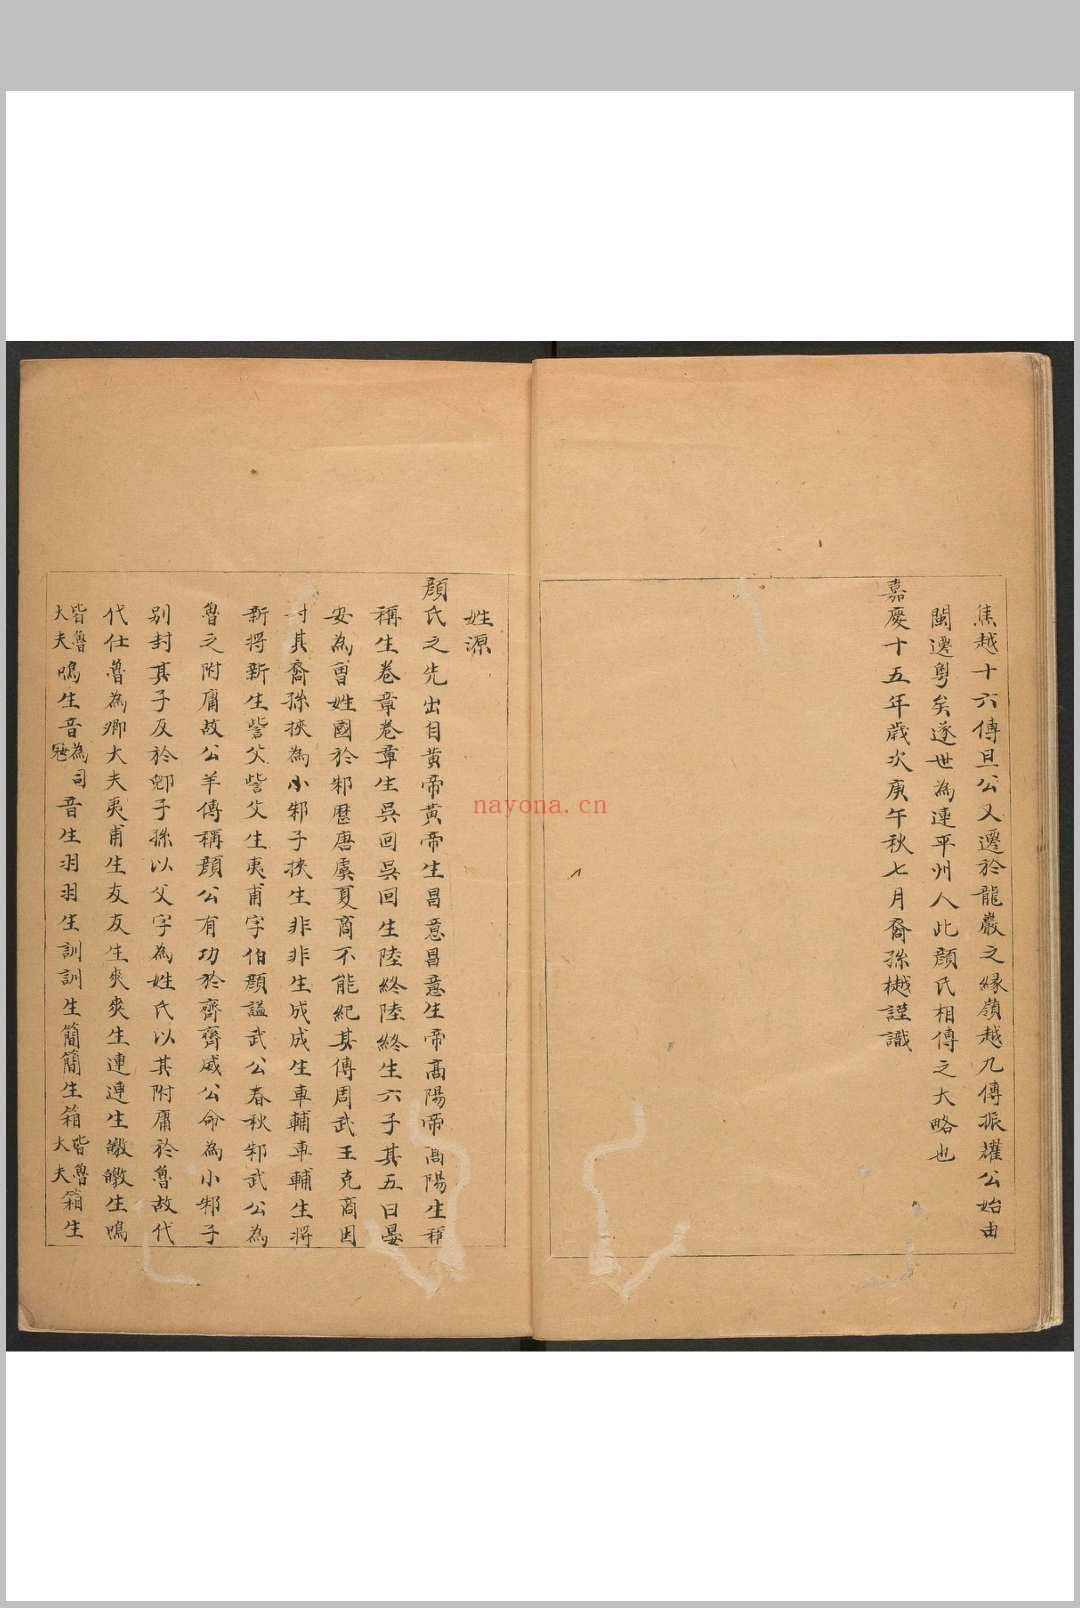 焦越十六傳旦公又遷於龍巖之緣嶺越九傳振耀公始由
閩遷粵矣遂世為連平州人此顏氏相傳之大略也
嘉慶十五年歲次庚午秋七月裔孫樾謹識
姓源
顏氏之先出自黃帝黃帝生昌意昌意生帝高陽帝高陽生稱
稱生卷章卷章生吳回吳回生陸終陸終生六子其五曰晏
安為曹姓國於邾歷唐虞夏商不能紀其傳周武王克商因
封其裔孫挾為小邾子挾生非非生成成生車輔車輔生將
新將新生訾父訾父生夷甫字伯顏諡武公春秋邾武公為
魯之附庸故公羊傳稱顏公有功於齊齊威公命為小邾子
別封其子友於郳子孫以父字為姓氏以其附庸於魯故代
代仕魯為卿大夫夷甫生友友生爽爽生連連生皦皦生鳴
皆魯大夫鳴生音為司寇音生羽羽生訓訓生簡簡生箱皆魯大夫箱生
nayona.cn